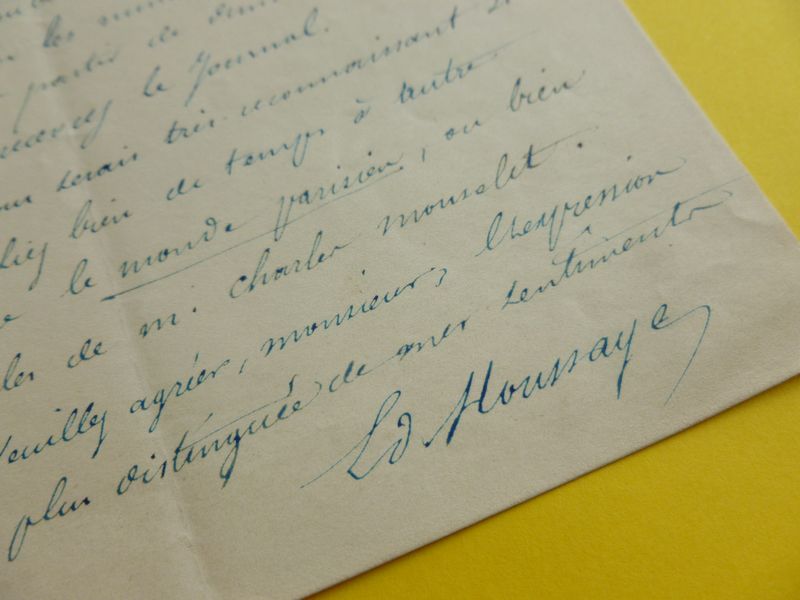 les
partie de
le journal.
serais très reconnaissant
bien de temps à autre
le monde parisien, ou bien
de m. charles monselet.
Veuillez agréer, monsieur, l'expression
plus distinguée de mes sentiments
Ed Houssaye